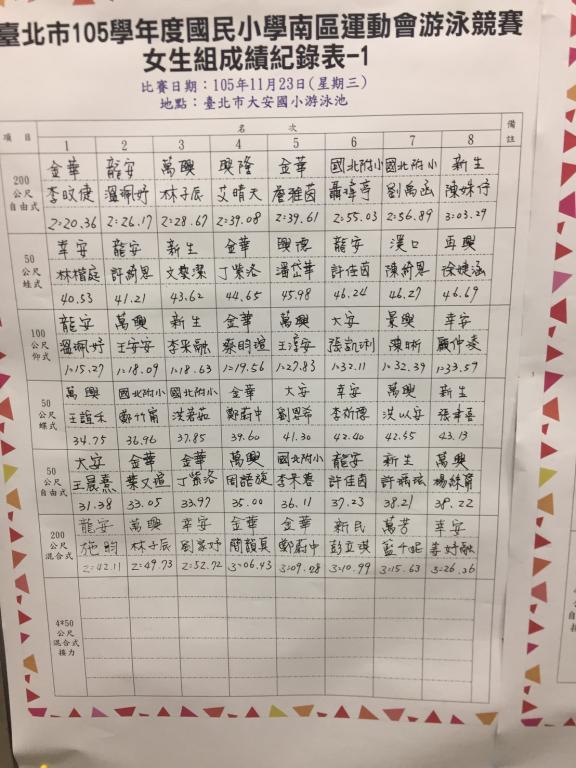 臺北市105學年度國民小學南區運動會游泳競賽
女生組成績紀錄表-1
比賽日期：105年11月23日(星期三)
地點：臺北市大安國小游泳池
項目 名次 備註
1 2 3 4 5 6 7 8
200公尺自由式
金華 龍安 萬興 興隆 金華 國北附小 國北附小 新生
溫珮妤 林子辰 艾晴天
2:20.36 2:26.17 2:28.67 2:39.08 2:39.61 2:55.03 2:56.89 3:03.29
50公尺蛙式
幸安 龍安 新生 金華 興德 龍安 溪口 再興
林楷庭 許綺恩 丁紫洛 潘岱華 許佳茵 陳綺恩
40.53 41.21 43.62 44.65 45.98 46.24 46.27 46.69
100公尺仰式
龍安 萬興 新生 金華 萬興 大安 景興 幸安
溫珮妤 王安安 李采融 蔡昀瑄 張凱俐 陳昕
1:15.27 1:18.09 1:18.63 1:19.56 1:27.83 1:32.11 1:32.39 1:33.57
50公尺蝶式
萬興 國北附小 國北附小 金華 大安 幸安 萬興 新生
王誼禾 鄭竹甯 洪若茹 鄭蔚中 劉恩希 洪以安
34.75 36.96 37.85 39.60 41.30 42.40 42.55 43.13
50公尺自由式
大安 金華 金華 萬興 國北附小 龍安 新生 萬興
王晨熹 葉又瑄 丁紫洛 周語旋 許佳茵
31.38 33.05 33.97 35.00 36.11 37.23 38.21 38.22
200公尺混合式
龍安 萬興 幸安 金華 金華 新民 萬芳 幸安
施昀 林子辰 劉家妤 簡韻真 鄭蔚中 彭立琪
2:42.11 2:49.73 2:52.72 3:06.43 3:09.28 3:10.99 3:15.63 3:26.26
4*50公尺混合式接力